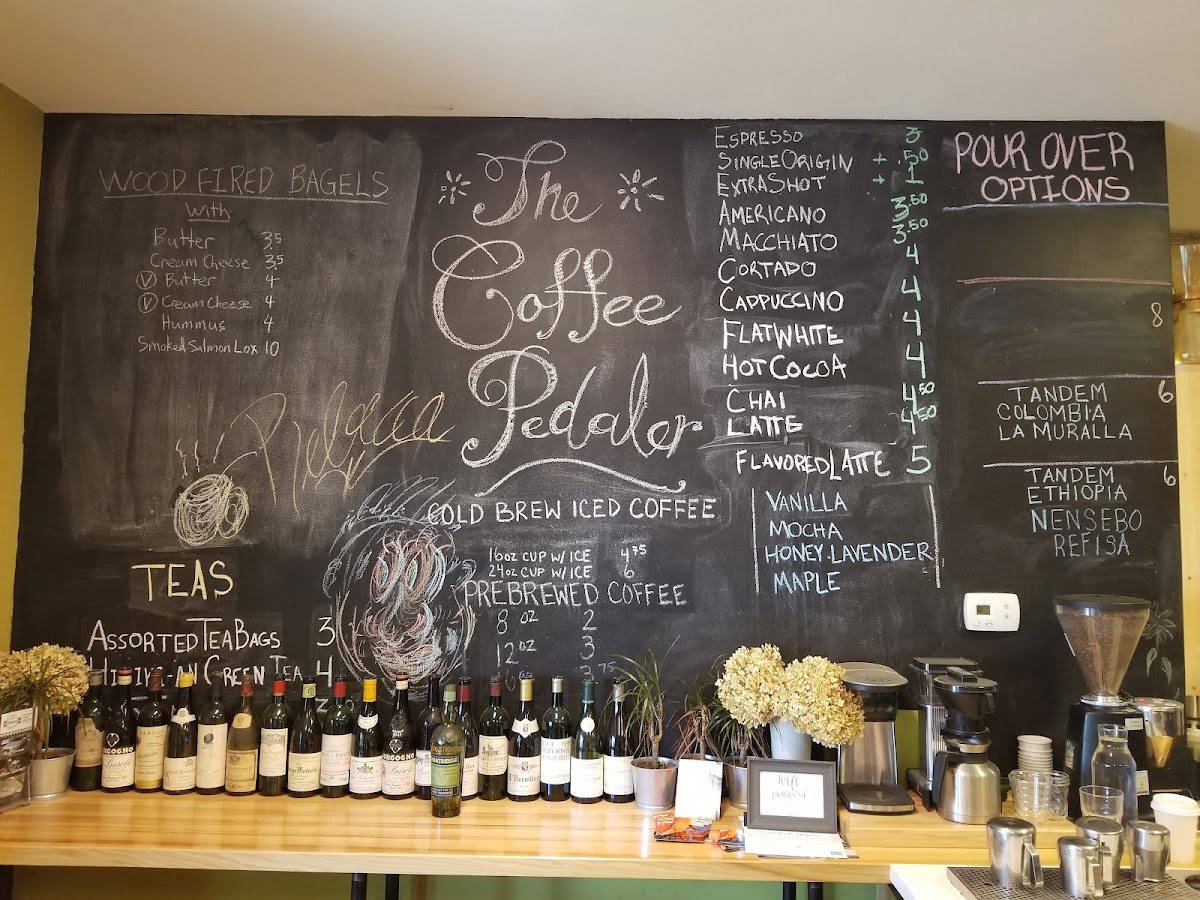 WOOD FIRED BAGELS
With
Butter 3.5
Cream Cheese 3.5
Ⓥ Butter 4
Ⓥ Cream Cheese 4
Hummus 4
Smoked Salmon Lox 10
TEAS
ASSORTED TEA BAGS 3
GREEN TEA 4
The
Coffee
Pedaler
COLD BREW ICED COFFEE
16oz CUP W/ ICE 4.75
24oz CUP W/ ICE 6
PREBREWED COFFEE
8 oz 2
12 oz 3
3.75
ESPRESSO 3
SINGLE ORIGIN + .50
EXTRA SHOT + 1
AMERICANO 3.50
MACCHIATO 3.50
CORTADO 4
CAPPUCCINO 4
FLAT WHITE 4
HOT COCOA 4
CHAI 4.50
LATTE 4.50
FLAVORED LATTE 5
VANILLA
MOCHA
HONEY·LAVENDER
MAPLE
POUR OVER
OPTIONS
8
TANDEM 6
COLOMBIA
LA MURALLA
TANDEM 6
ETHIOPIA
NENSEBO
REFISA
wifi
password